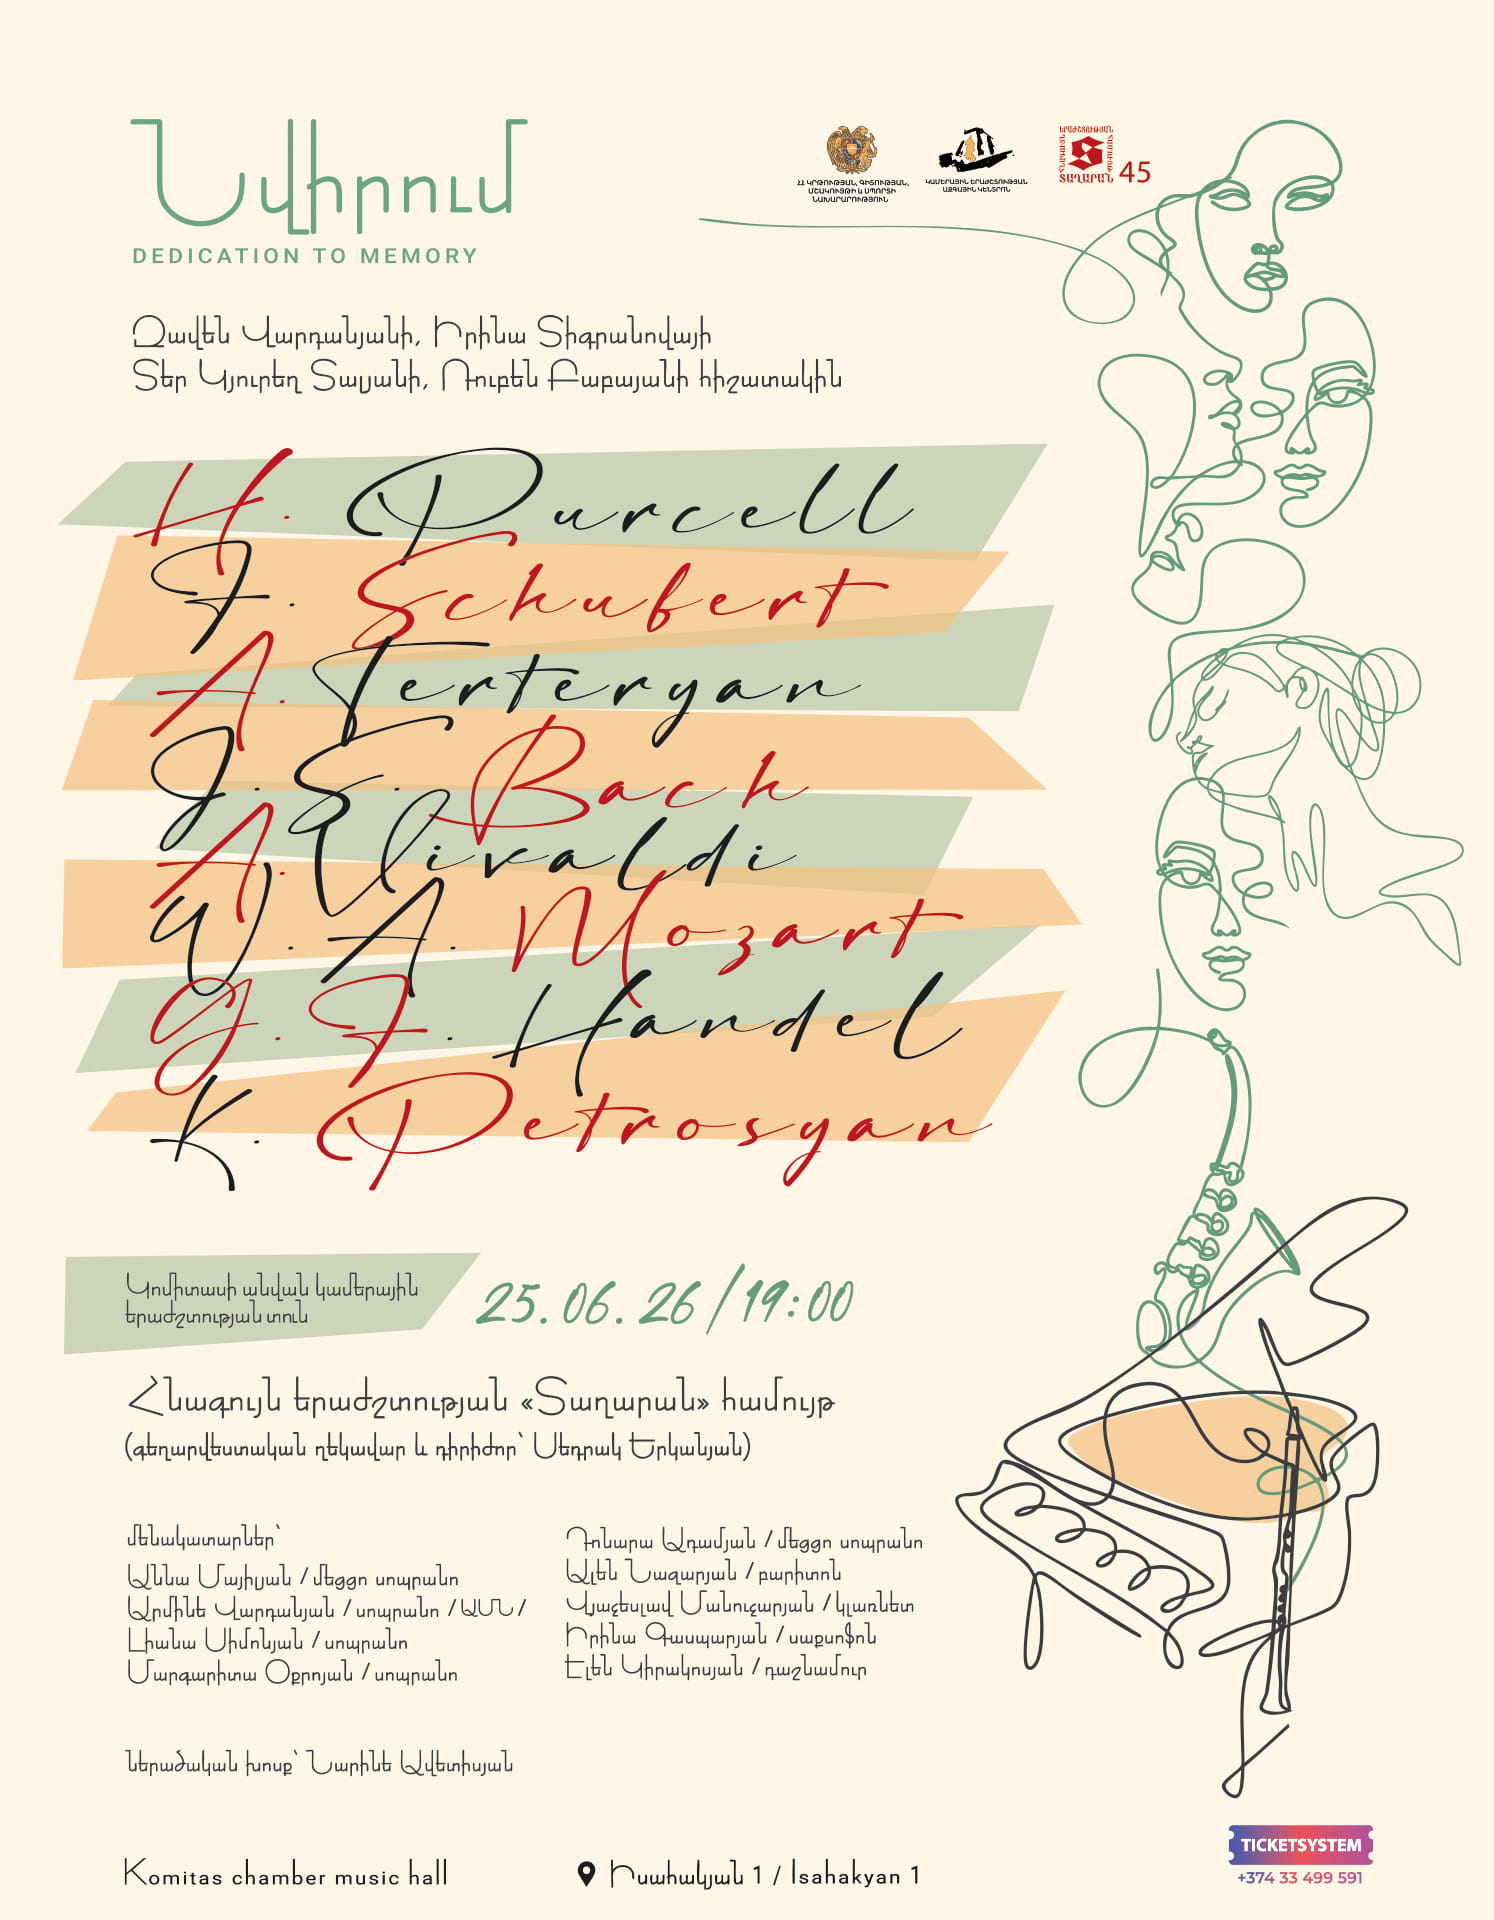 Նվիրում
DEDICATION TO MEMORY
ՀՀ ԿՐԹՈՒԹՅԱՆ, ԳԻՏՈՒԹՅԱՆ,
ՄՇԱԿՈՒՅԹԻ և ՍՊՈՐՏԻ
ՆԱԽԱՐԱՐՈՒԹՅՈՒՆ
ԿԱՄԵՐԱՅԻՆ ԵՐԱԺՇՏՈՒԹՅԱՆ
ԱԶԳԱՅԻՆ ԿԵՆՏՐՈՆ
ԵՐԱԺՇՏՈՒԹՅԱՆ
ՏԱՂԱՐԱՆ 45
Զավեն Վարդանյանի, Իրինա Տիգրանովայի
Տեր Կյուրեղ Տալյանի, Ռուբեն Բաբայանի հիշատակին
H. Purcell
F. Schubert
A. Terteryan
J. S. Bach
A. Vivaldi
W. A. Mozart
G. F. Handel
K. Petrosyan
Կոմիտասի անվան կամերային
երաժշտության տուն
25.06.26/19:00
Հնագույն երաժշտության «Տաղարան» համույթ
(գեղարվեստական ղեկավար և դիրիժոր՝ Սեդրակ Երկանյան)
մենակատարներ՝
Աննա Մայիլյան / մեցցո սոպրանո
Արմինե Վարդանյան / սոպրանո / ԱՄՆ /
Լիանա Սիմոնյան / սոպրանո
Մարգարիտա Օքրոյան / սոպրանո
Դոնարա Ադամյան / մեցցո սոպրանո
Ալեն Նազարյան / բարիտոն
Վյաչեսլավ Մանուչարյան / կլառնետ
Իրինա Գասպարյան / սաքսոֆոն
Էլեն Կիրակոսյան / դաշնամուր
ներածական խոսք՝ Նարինե Ավետիսյան
Komitas chamber music hall
Իսահակյան 1 / Isahakyan 1
TICKETSYSTEM
+374 33 499 591